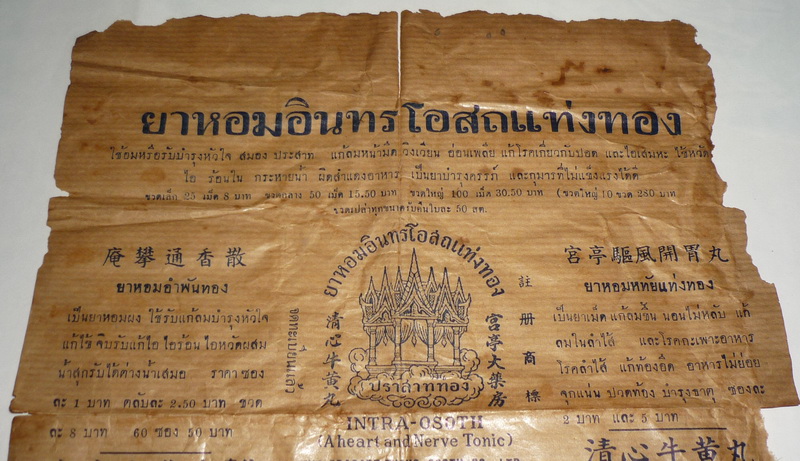 ยาหอมอินทรโอสถแท่งทอง
ใช้อมหรือรับบำรุงหัวใจ สมอง ประสาท แก้ลมหน้ามืด วิงเวียน อ่อนเพลีย แก้โรคเกี่ยวกับปอด และไอเสมหะ ใช้หวัด
ไอ ร้อนใน กระหายน้ำ ผิดสำแดงอาหาร เป็นยาบำรุงครรภ์ และกุมารที่ไม่แข็งแรงได้ดี
ขวดเล็ก 25 เม็ด 8 บาท ขวดกลาง 50 เม็ด 15.50 บาท ขวดใหญ่ 100 เม็ด 30.50 บาท (ขวดใหญ่ 10 ขวด 280 บาท
50 สต.
庵攀通香散
ยาหอมอำพันทอง
เป็นยาหอมผง ใช้รับแก้ลมบำรุงหัวใจ
แก้ไข้ จิบรับแก้ไอ ไอร้อน ไอหวัดผสม
น้ำสุกรับได้ต่างน้ำเสมอ ราคา ซอง
ละ 1 บาท ตลับละ 2.50 บาท ขวด
ละ 8 บาท 60 ซอง 50 บาท
จดทะเบียนแล้ว
ยาหอมอินทรโอสถแท่งทอง
清心牛黃丸
宮亭大藥房
註册商標
ปราสาททอง
INTRA-OSOTH
(A heart and Nerve Tonic)
宮亭驅風開胃丸
ยาหอมหทัยแท่งทอง
เป็นยาเม็ด แก้ลมขึ้น นอนไม่หลับ แก้
ลมในลำไส้ และโรคกะเพาะอาหาร
โรคลำไส้ แก้ท้องอืด อาหารไม่ย่อย
จุกแน่น ปวดท้อง บำรุงธาตุ ซองละ
2 บาท และ 5 บาท
清心牛黃丸